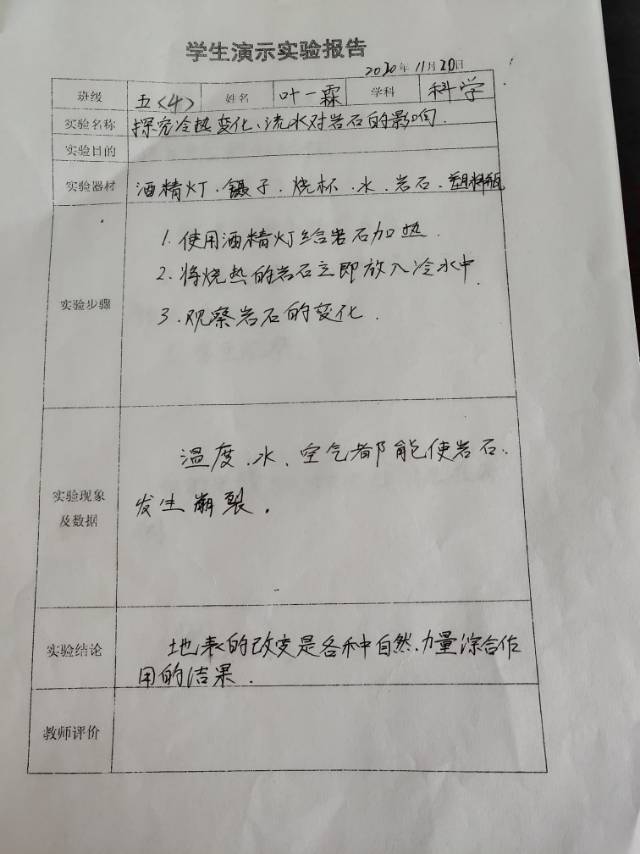 学生演示实验报告
2020年11月20日
班级 五<4> 姓名 叶一霖 学科 科学
实验名称 探究冷热变化、流水对岩石的影响.
实验目的
实验器材 酒精灯、镊子、烧杯、水、岩石、塑料瓶
实验步骤
1.使用酒精灯给岩石加热.
2.将烧热的岩石立即放入冷水中.
3.观察岩石的变化.
实验现象
及数据
温度、水、空气都能使岩石
发生崩裂.
实验结论
地表的改变是各种自然力量综合作
用的结果.
教师评价